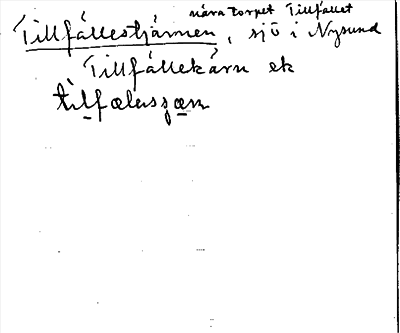 nära torpet Tillfället
Tillfällestjärnen, sjö i Nysund
Tillfällekärn ek